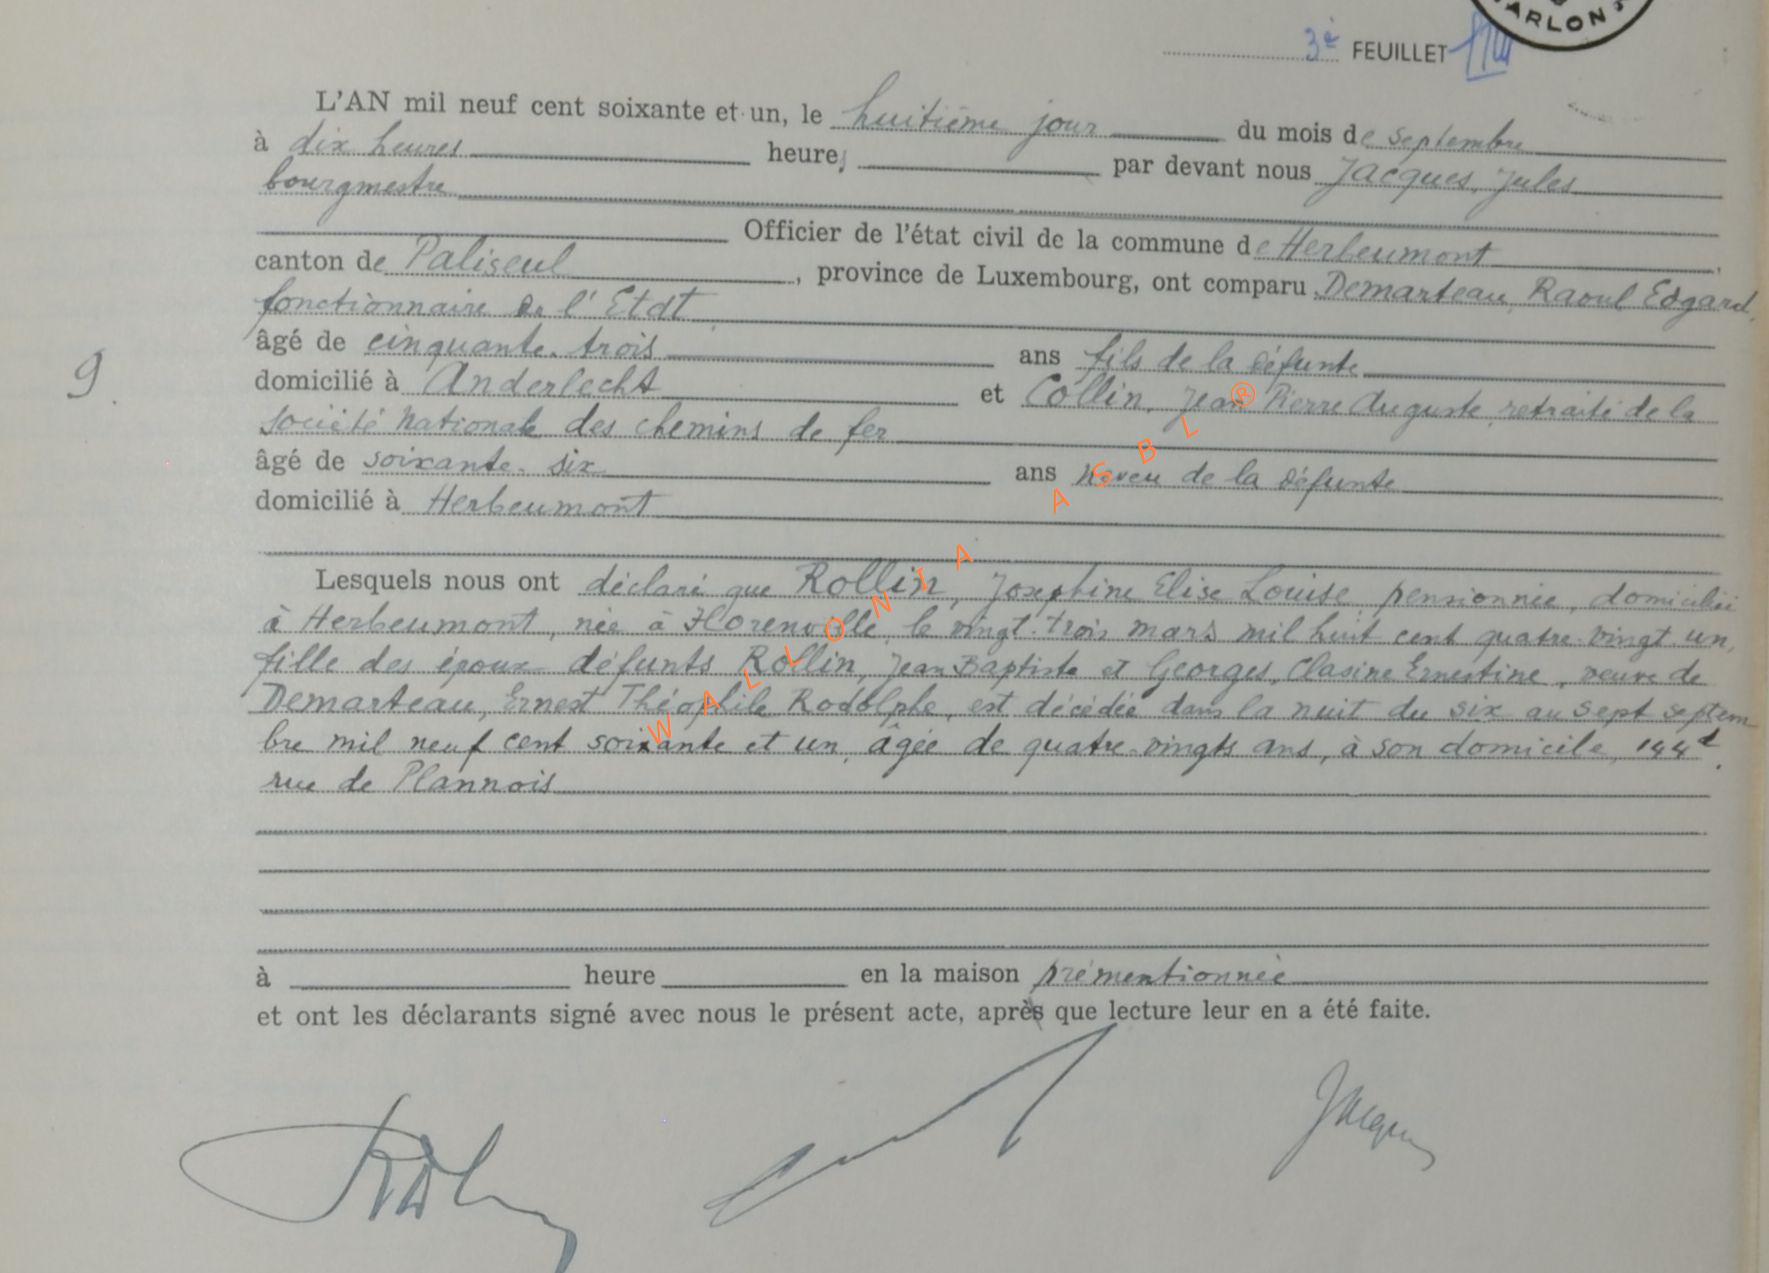 ARLON
3e FEUILLET
L'AN mil neuf cent soixante et un, le huitième jour du mois de septembre
à dix heures heure, par devant nous Jacques, Jules
bourgmestre
Officier de l'état civil de la commune de Herbeumont
canton de Paliseul, province de Luxembourg, ont comparu Demarteau, Raoul Edgard,
fonctionnaire de l'Etat
9.
âgé de cinquante-trois ans fils de la défunte
domicilié à Anderlecht et Collin, Jean Pierre Auguste, retraité de la
société Nationale des chemins de fer
âgé de soixante-six ans neveu de la défunte
domicilié à Herbeumont
Lesquels nous ont déclaré que Rollin, Josephine Elise Louise, pensionnée, domiciliée
à Herbeumont, née à Florenville, le vingt-trois mars mil huit cent quatre-vingt un,
fille des époux défunts Rollin, Jean Baptiste et Georges, Clasine Ernestine, veuve de
Demarteau, Ernest Théophile Rodolphe, est décédée dans la nuit du six au sept septem
bre mil neuf cent soixante et un, âgée de quatre-vingts ans, à son domicile, 144d,
rue de Plannois
à heure en la maison prémentionnée
et ont les déclarants signé avec nous le présent acte, après que lecture leur en a été faite.
Jacques
WALLONIA ASBL ®